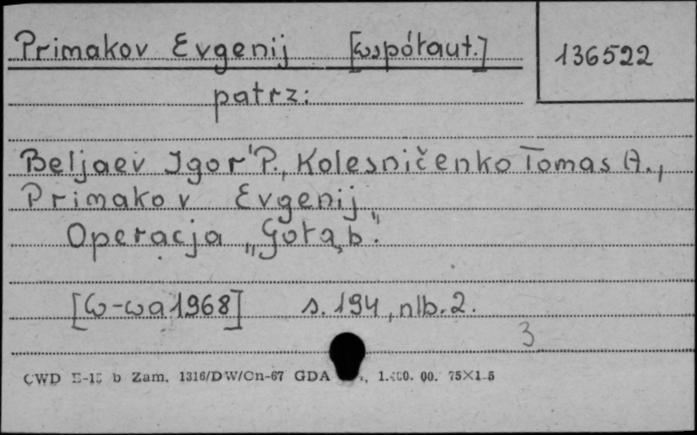 Primakov Evgenij [współaut.]
136522
patrz:
Beljaev Igor' P., Kolesničenko Tomas A.,
Primakov Evgenij
Operacja „Gołąb".
[W-wa 1968] s. 194, nlb. 2.
3
CWD b Zam. 1316/DW/Cn-67 GDA